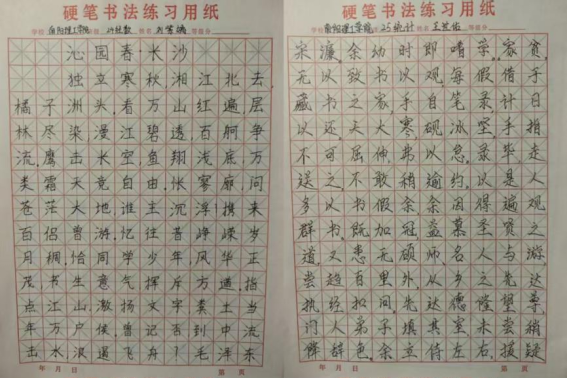 硬笔书法练习用纸
学校 南阳理工学院 班级 姓名 等级分
沁园春长沙
独立寒秋,湘江北去,
橘子洲头,看万山红遍,层
林尽染漫江碧透,百舸争
流,鹰击长空鱼翔浅底,万
类霜天竞自由,怅寥廓,问
苍茫大地,谁主沉浮?携来
百侣曾游,忆往昔峥嵘岁
月稠,恰同学少年,风华正
茂书生意气挥斥方遒,指
点江山,激扬文字粪土当
年万户侯,曾记否到中流
击水浪遏飞舟?毛泽东
年 月 日 第 页
硬笔书法练习用纸
学校 南阳理工学院 班级 25统计 姓名 等级分
宋濂,余幼时即嗜学。家贫,
无以致书以观,每假借于
藏书之家手自笔录,计日
以还,天大寒砚冰坚,手指
不可屈伸,弗以怠。录毕走
送之,不敢稍逾约,以是人
多以书假余余因得遍观
群书,既加冠益慕圣贤之
道,又患无硕师名人与游,
尝趋百里外,从乡之先达
执经扣问,先达德尊,
门人弟子填其室,未尝稍
辞色。余立侍左右,援疑
年 月 日 第 页